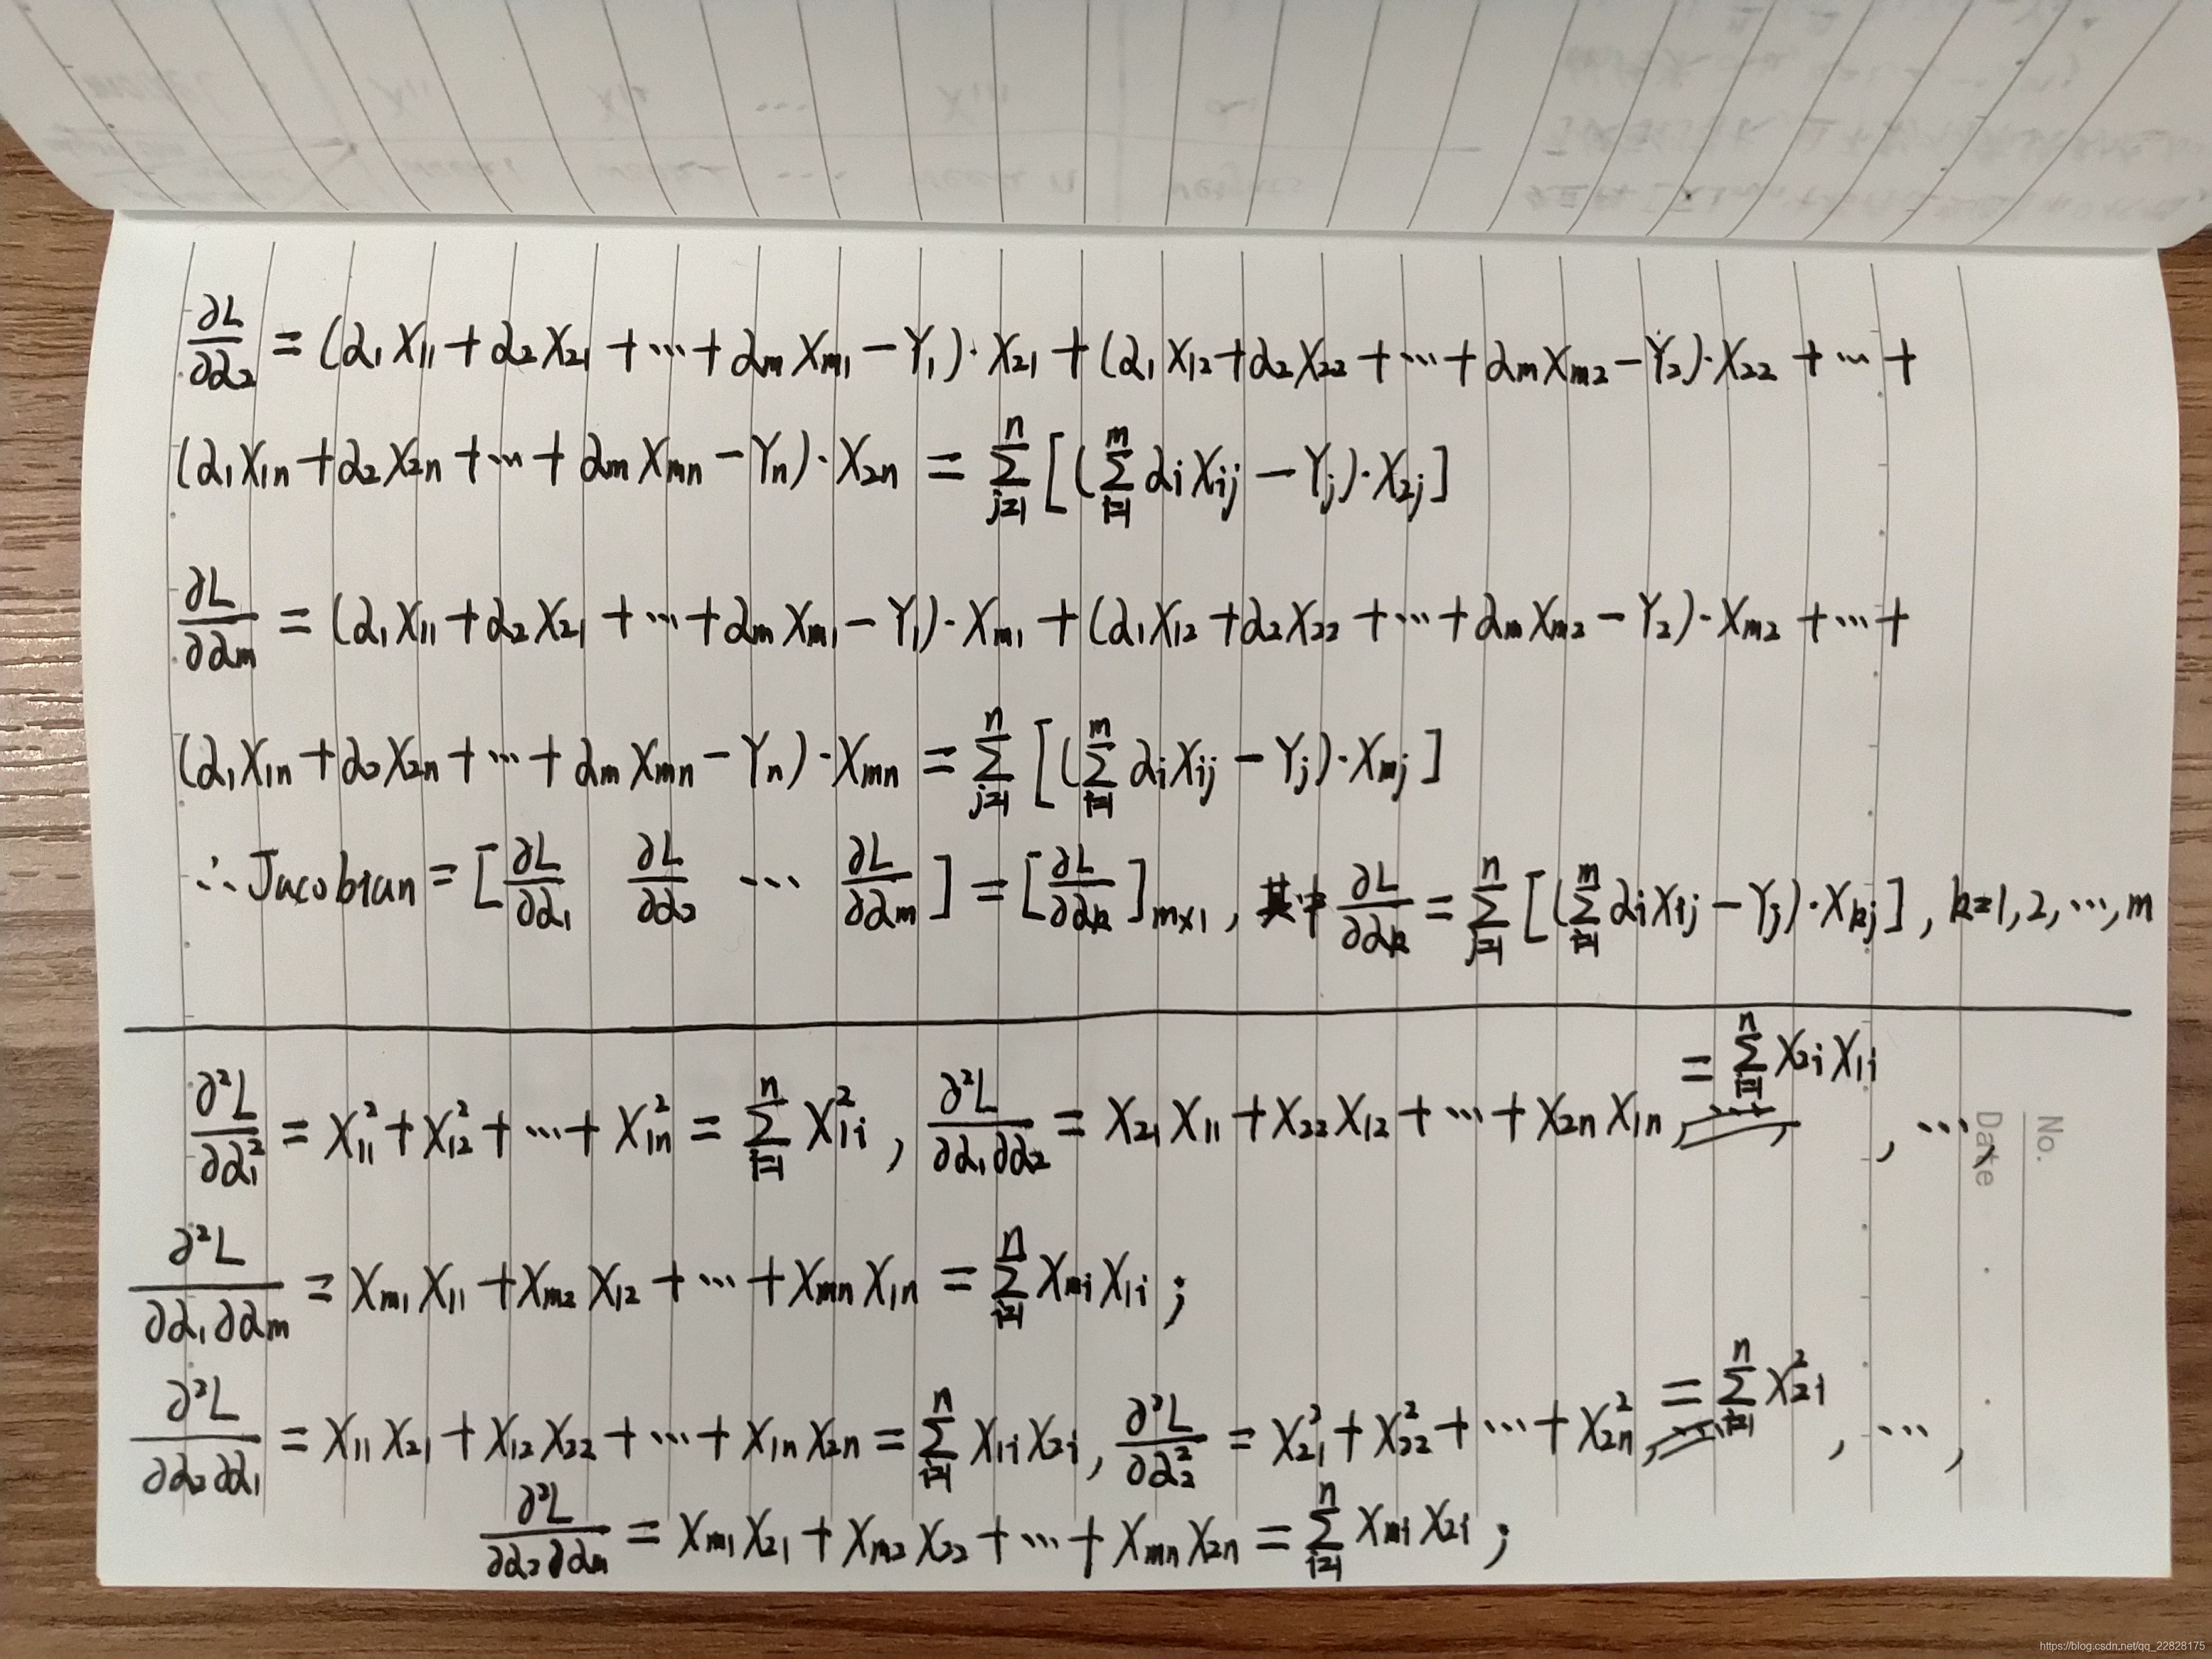 ∂L/∂α₂ = (α₁X₁₁ + α₂X₂₁ + ⋯ + αₘXₘ₁ − Y₁)·X₂₁ + (α₁X₁₂ + α₂X₂₂ + ⋯ + αₘXₘ₂ − Y₂)·X₂₂ + ⋯ +
(α₁X₁ₙ + α₂X₂ₙ + ⋯ + αₘXₘₙ − Yₙ)·X₂ₙ = ∑_{j=1}^{n} [(∑_{i=1}^{m} αᵢXᵢⱼ − Yⱼ)·X₂ⱼ]
∂L/∂αₘ = (α₁X₁₁ + α₂X₂₁ + ⋯ + αₘXₘ₁ − Y₁)·Xₘ₁ + (α₁X₁₂ + α₂X₂₂ + ⋯ + αₘXₘ₂ − Y₂)·Xₘ₂ + ⋯ +
(α₁X₁ₙ + α₂X₂ₙ + ⋯ + αₘXₘₙ − Yₙ)·Xₘₙ = ∑_{j=1}^{n} [(∑_{i=1}^{m} αᵢXᵢⱼ − Yⱼ)·Xₘⱼ]
∴ Jacobian = [∂L/∂α₁ ∂L/∂α₂ ⋯ ∂L/∂αₘ] = [∂L/∂αₖ]ₘₓ₁, 其中 ∂L/∂αₖ = ∑_{j=1}^{n} [(∑_{i=1}^{m} αᵢXᵢⱼ − Yⱼ)·Xₖⱼ], k=1,2,⋯,m
∂²L/∂α₁² = X₁₁² + X₁₂² + ⋯ + X₁ₙ² = ∑_{i=1}^{n} X₁ᵢ², ∂²L/∂α₁∂α₂ = X₂₁X₁₁ + X₂₂X₁₂ + ⋯ + X₂ₙX₁ₙ = ∑_{i=1}^{n} X₂ᵢX₁ᵢ, ⋯,
∂²L/∂α₁∂αₘ = Xₘ₁X₁₁ + Xₘ₂X₁₂ + ⋯ + XₘₙX₁ₙ = ∑_{i=1}^{n} XₘᵢX₁ᵢ;
∂²L/∂α₂∂α₁ = X₁₁X₂₁ + X₁₂X₂₂ + ⋯ + X₁ₙX₂ₙ = ∑_{i=1}^{n} X₁ᵢX₂ᵢ, ∂²L/∂α₂² = X₂₁² + X₂₂² + ⋯ + X₂ₙ² = ∑_{i=1}^{n} X₂ᵢ², ⋯,
∂²L/∂α₂∂αₘ = Xₘ₁X₂₁ + Xₘ₂X₂₂ + ⋯ + XₘₙX₂ₙ = ∑_{i=1}^{n} XₘᵢX₂ᵢ;
No.
Date
https://blog.csdn.net/qq_22828175